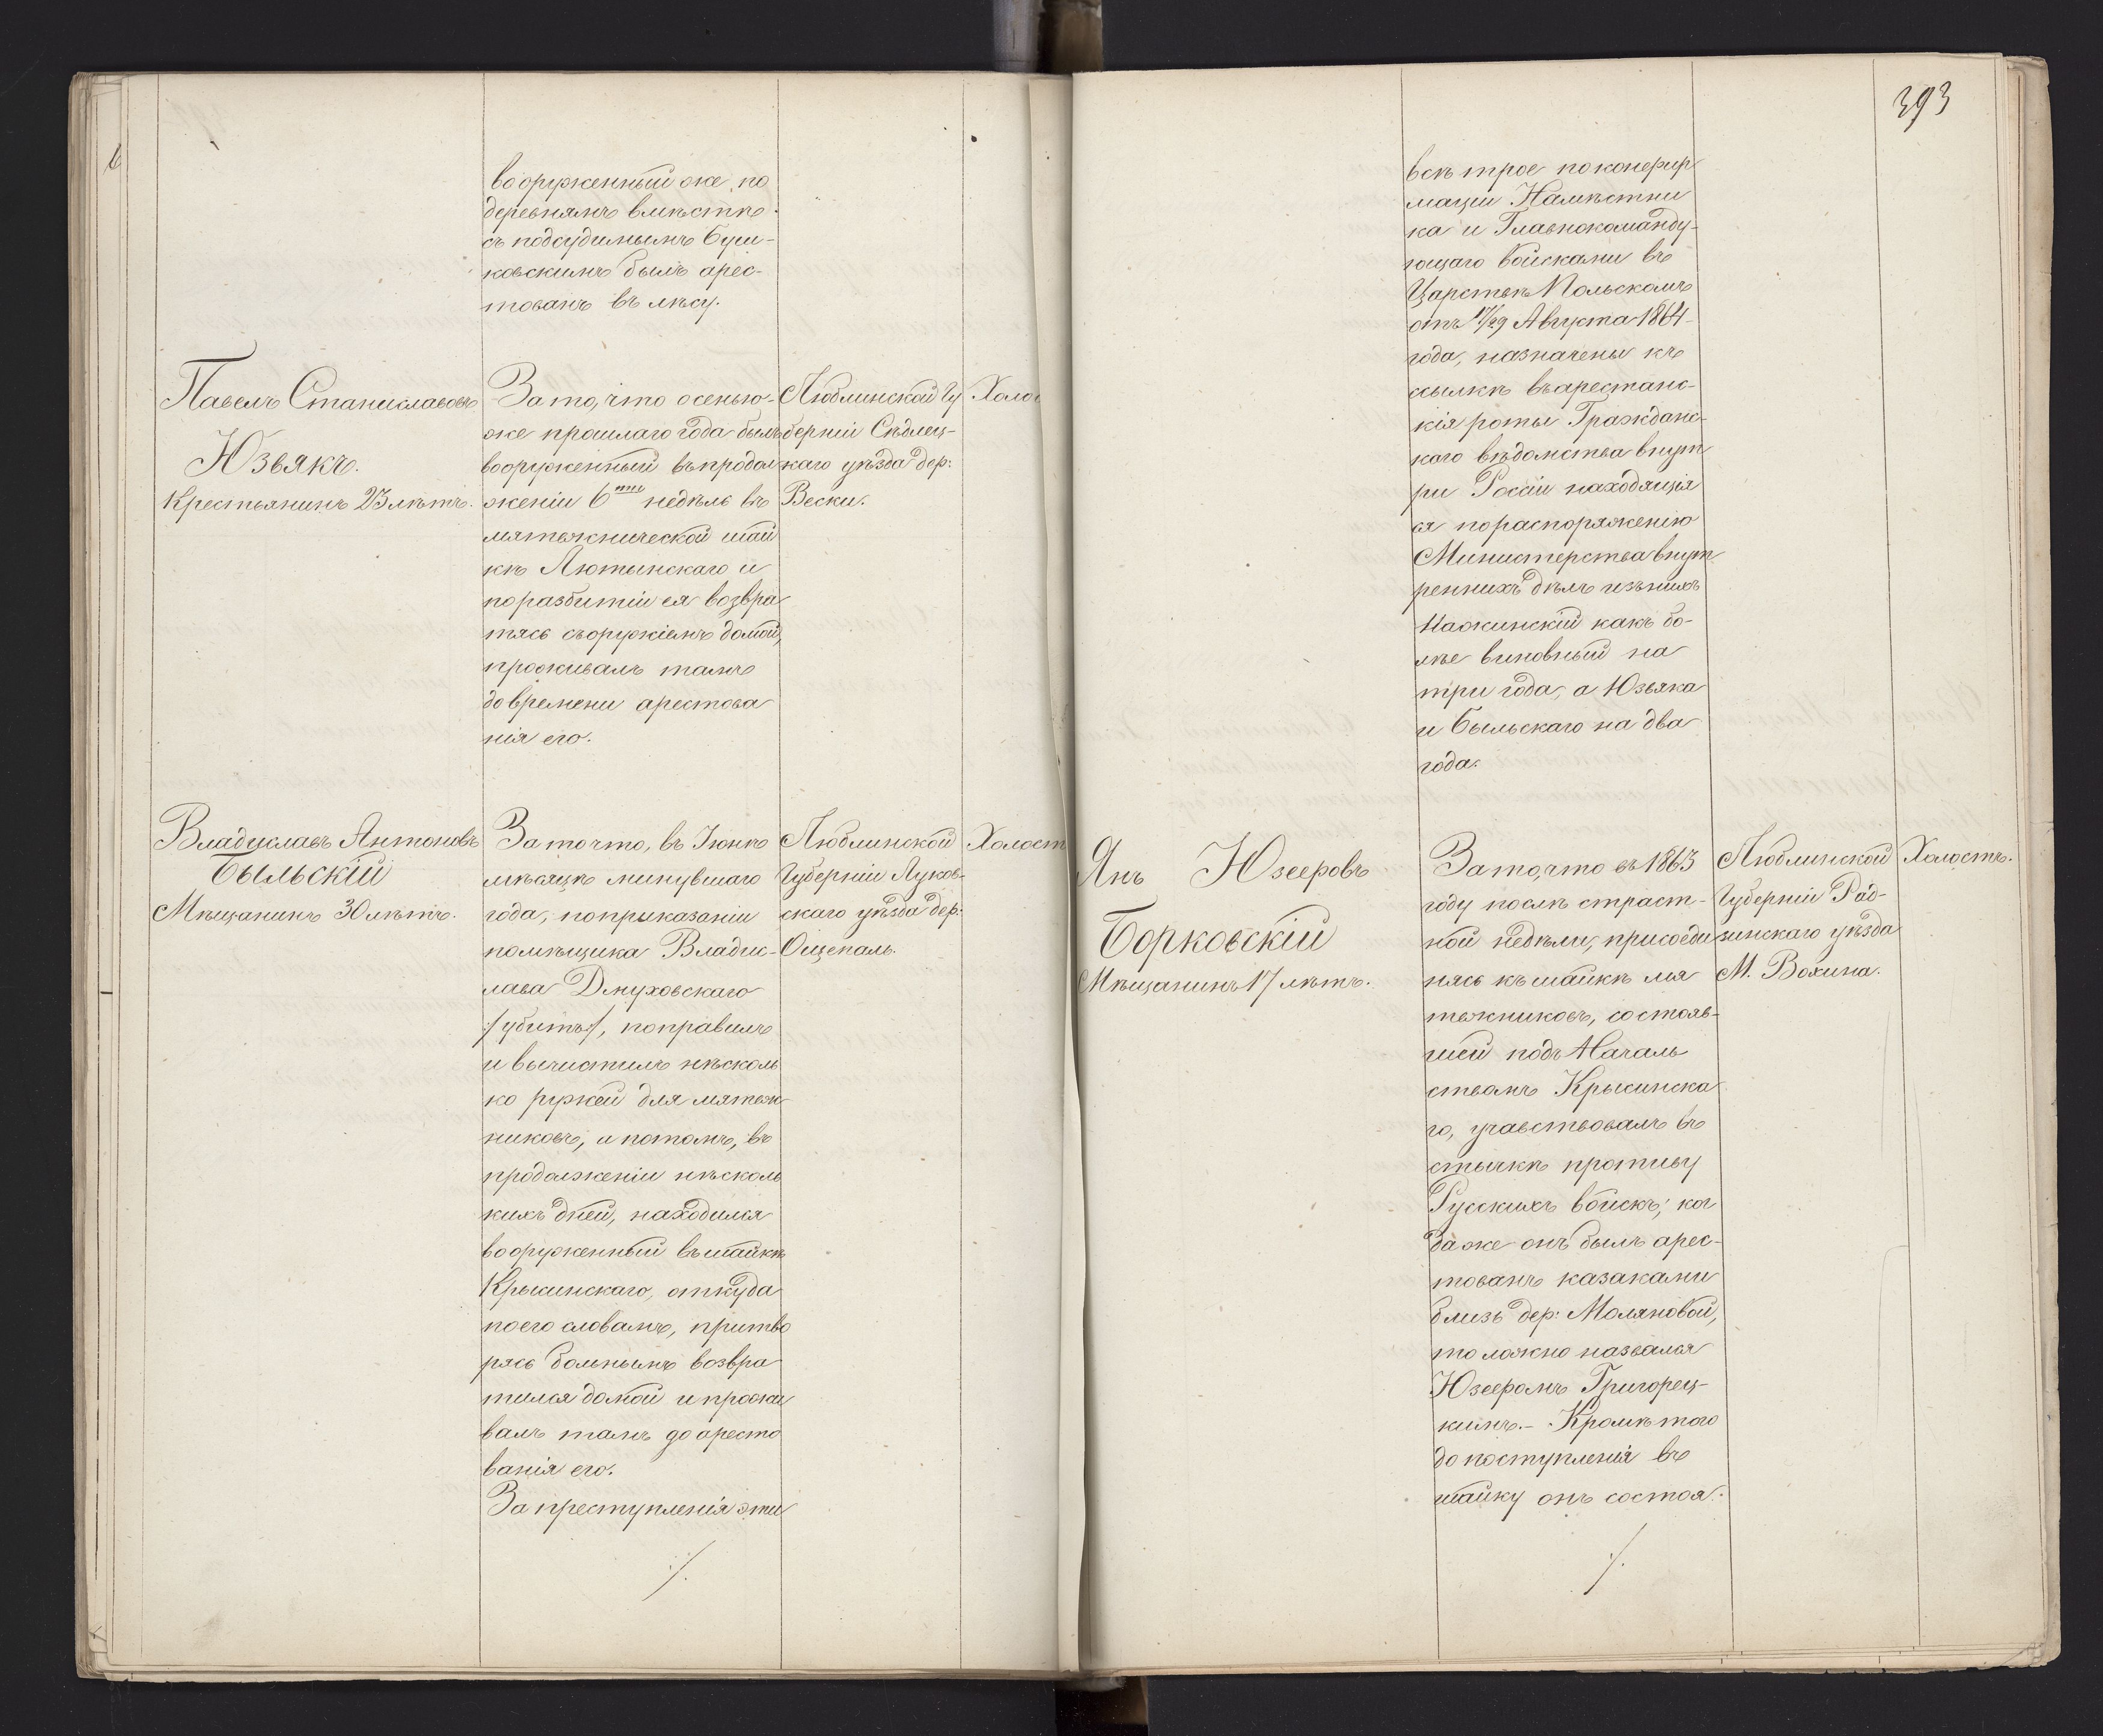 вооруженный же, по
деревнямъ вмѣстѣ
съ подсудимымъ Буш-
ковскимъ былъ арес-
тованъ въ лѣсу.
Павелъ Станиславовъ
Юзвякъ.
Крестьянинъ 23 лѣтъ.
За то, что осенью-
же прошлаго года былъ
вооруженный въ продол
женіи 6ти недѣль въ
мятежнической шай
кѣ Лютынскаго и
по разбитіи ея возвра
тясь съ оружіемъ домой,
проживалъ тамъ
до времени арестова
нія его.
Люблинской Гу
берніи Сѣдлец-
каго уѣзда дер:
Вески.
Холос
Владиславъ Антоновъ
Быльскій
Мѣщанинъ 30 лѣтъ.
За то что, въ Іюнѣ
мѣсяцѣ минувшаго
года, по приказанію
помѣщика Владис-
лава Дмуховскаго
/:убитъ:/, поправилъ
и вычистилъ нѣсколь
ко ружей для мятеж-
никовъ, и потомъ, въ
продолженіи нѣсколь
кихъ дней, находился
вооруженный въ шайкѣ
Крысинскаго, откуда
по его словамъ, притво
рясь больнымъ возвра
тился домой и прожи
валъ тамъ до аресто
ванія его.
За преступленія эти
./.
Люблинской
Губерніи Луков-
скаго уѣзда дер:
Ощепаль.
Холост
393
всѣ трое по конфир
маціи Намѣстни
ка и Главнокоманду-
ющаго войсками въ
Царствѣ Польскомъ
отъ 17/29 Августа 1864
года, назначены къ
ссылкѣ въ арестанс-
кія роты Гражданс-
каго вѣдомства внут
ри Россіи находящія
ся по распоряженію
Министерства внут
реннихъ дѣлъ изъ нихъ
Нажинскій какъ бо-
лѣе виновный на
три года, а Юзвяка
и Быльскаго на два
года.
Янъ Юзефовъ
Борковскій
Мѣщанинъ 17 лѣтъ.
За то, что въ 1863
году послѣ страст-
ной недѣли, присоеди
нясь къ шайкѣ мя
тежниковъ, состояв-
шей подъ Началь
ствомъ Крысинска
го, учавствовалъ въ
стычкѣ противу
Русскихъ войскъ; ког
да же онъ былъ арес-
тованъ казаками
близъ дер: Моляновой,
то ложно назвался
Юзефомъ Григорец-
кимъ.- Кромѣ того
до поступленія въ
шайку онъ состоя.
./.
Люблинской
Губерніи Рад-
зинскаго уѣзда
М. Вохина.
Холостъ.